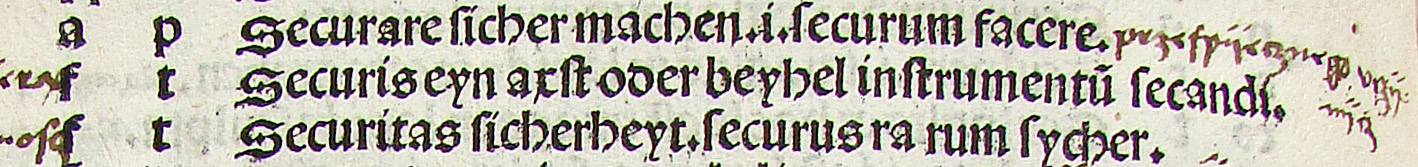 a p Securare ſicher machen .i. ſecurum facere.
f t Securis eyn axſt oder beyhel inſtrumentū ſecandi.
f t Securitas ſicherheyt. ſecurus ra rum ſycher.